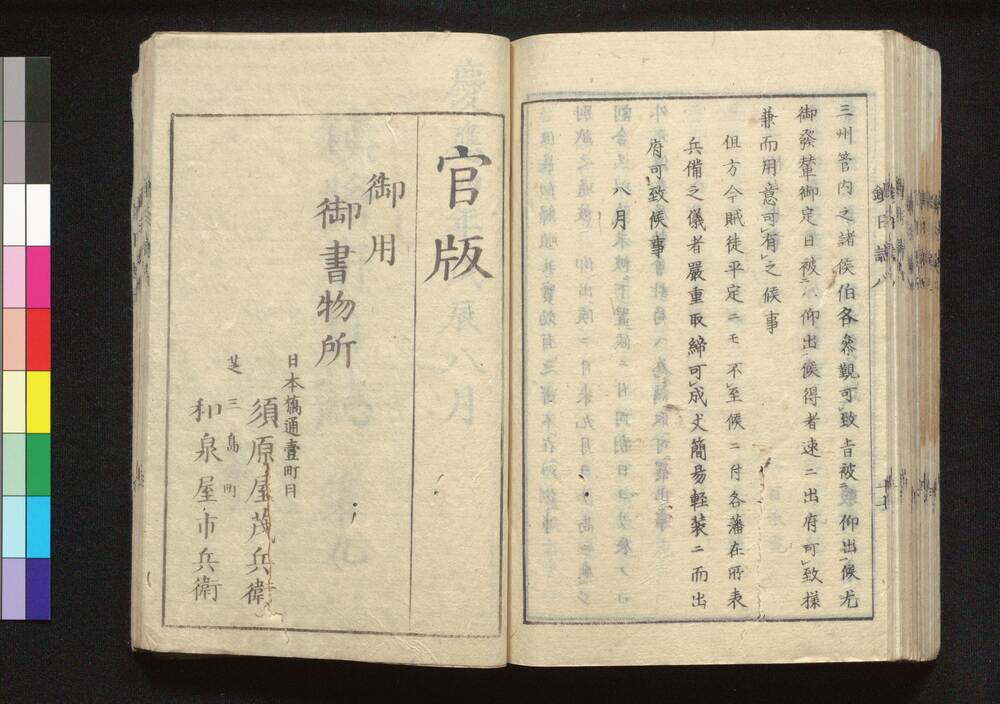 三州管内之諸侯伯各參覲可致旨被仰出候尤
御發輦御定日被仰出候得者速ニ出府可致様
兼而用意可有之候事
但方今賊徒平定ニモ不至候ニ付各藩在所表
兵備之儀者嚴重取締可成丈簡易軽装ニ而出
府可致候事
八月
鎮日誌八
官版
御用
御書物所
日本橋通壹町目
須原屋茂兵衛
芝三島町
和泉屋市兵衛